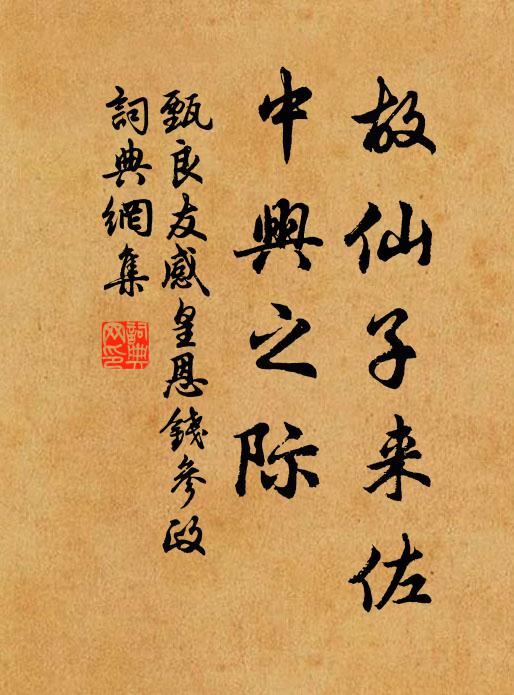 故仙子来佐
中興之际
甄良友感皇恩錢參政
詞典網集
詞典网印